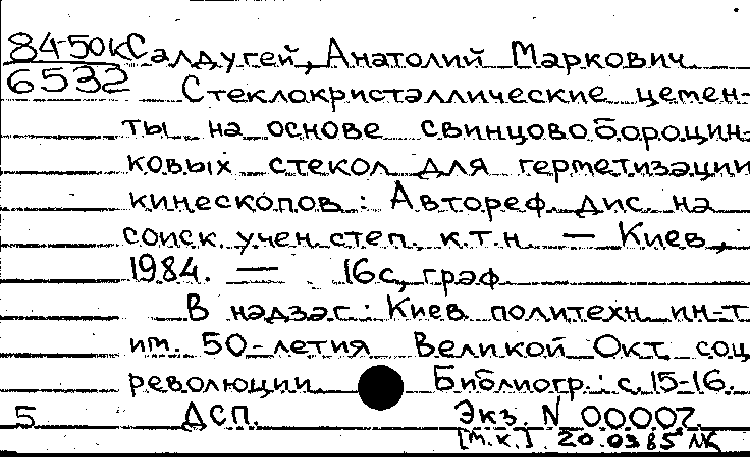 84-50к Салдугей, Анатолий Маркович
6532 Стеклокристаллические цемен-
ты на основе свинцовоборацин-
ковых стекол для герметизации
кинескопов: Автореф. дис. на
соиск. учен. степ. к.т.н. — Киев,
1984. — 16с, граф
В надзаг: Киев. политехн. ин-т
им. 50-летия Великой Окт. соц.
революции Библиогр.: с.15-16.
5 ДСП. Экз. N 00007
[м.к.] 20.03 85